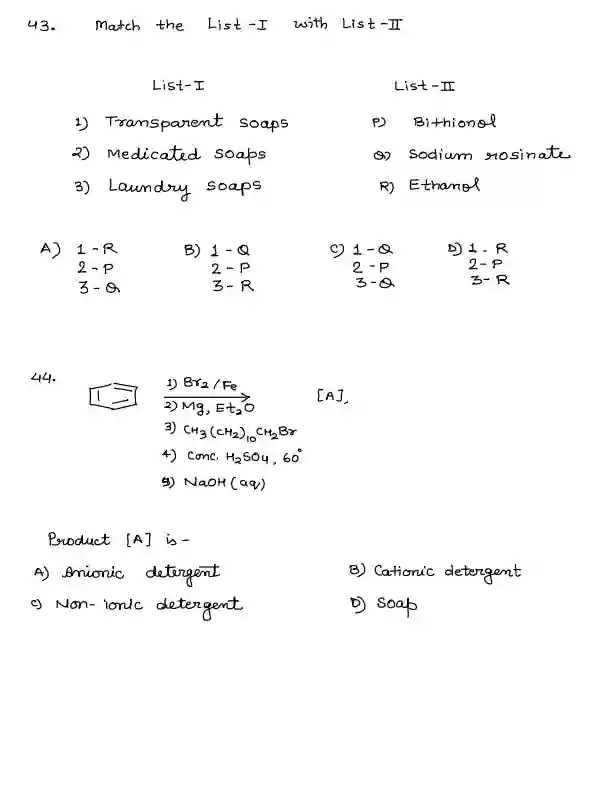 43. Match the List-I with List-II
List-I List-II
1) Transparent soaps P) Bithionol
2) Medicated soaps Q) Sodium rosinate
3) Laundry soaps R) Ethanol
A) 1-R B) 1-Q C) 1-Q D) 1-R
2-P 2-P 2-P 2-P
3-Q 3-R 3-Q 3-R
44. 1) Br2/Fe [A],
2) Mg, Et2O
3) CH3(CH2)10CH2Br
4) Conc. H2SO4, 60°
5) NaOH(aq)
Product [A] is -
A) Anionic detergent B) Cationic detergent
C) Non-ionic detergent D) Soap